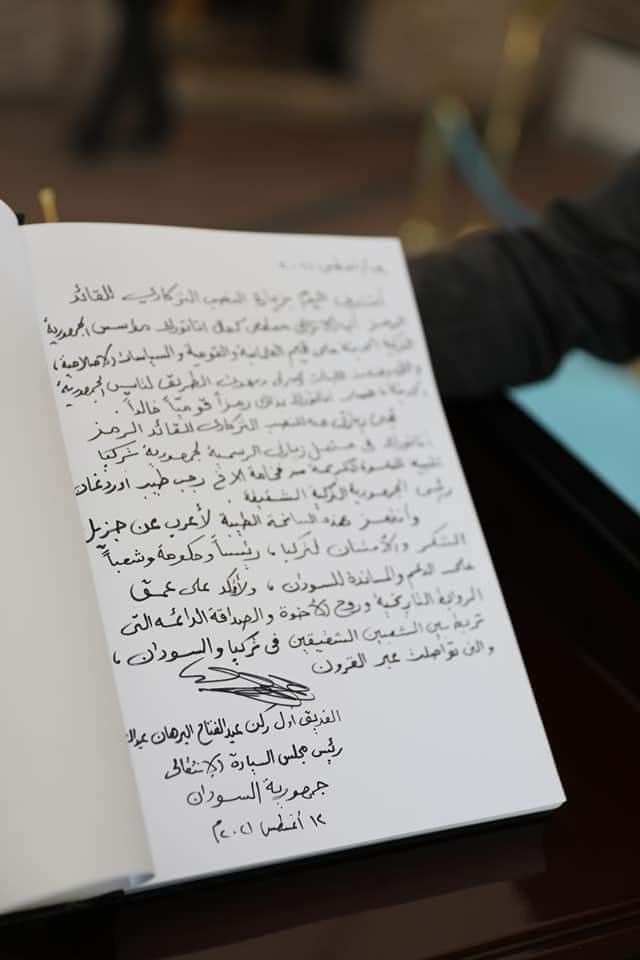 ١٢/أغسطس ٢٠٢١
أتشرف اليوم بزيارة النصب التذكاري للقائد
الرمز مصطفى كمال اتاتورك مؤسس الجمهورية
التركية الحديثة على قيم العلمانية والقومية والسياسات الإصلاحية،
الطريق لتأسيس الجمهورية
اتاتورك بذلك رمزاً قومياً خالداً.
تجئ زيارتي هذه للنصب التذكاري للقائد الرمز
اتاتورك في مستهل زيارتي الرسمية لجمهورية تركيا
تلبية للدعوة الكريمة من فخامة الأخ رجب طيب اوردغان
رئيس الجمهورية التركية الشقيقة.
وأنتهز هذه السانحة الطيبة لأعرب عن جزيل
الشكر والأمتنان لتركيا، رئيساً وحكومة وشعباً
على الدعم والمساندة للسودان، ولأؤكد على عمق
الروابط التاريخية وروح الأخوة والصداقة الدائمه التى
تربط بين الشعبين الشقيقين فى تركيا والسودان،
والتى تواصلت عبر القرون
الفريق اول ركن عبدالفتاح البرهان
رئيس مجلس السيادة الإنتقالى
جمهورية السودان
١٢ أغسطس ٢٠٢١م